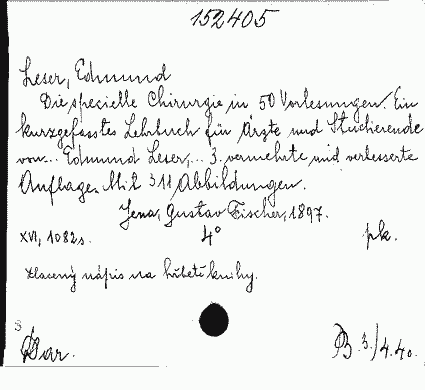 152405
Leser, Edmund
Die specielle Chirurgie in 50 Vorlesungen. Ein
kurzgefasstes Lehrbuch für Ärzte und Studierende
von... Edmund Leser,... 3. vermehrte und verbesserte
Auflage. Mit 311 Abbildungen.
Jena, Gustav Fischer, 1897.
XVI, 1082 s. 4° pk.
Zlacený nápis na hřbetě knihy.
3./4.40.